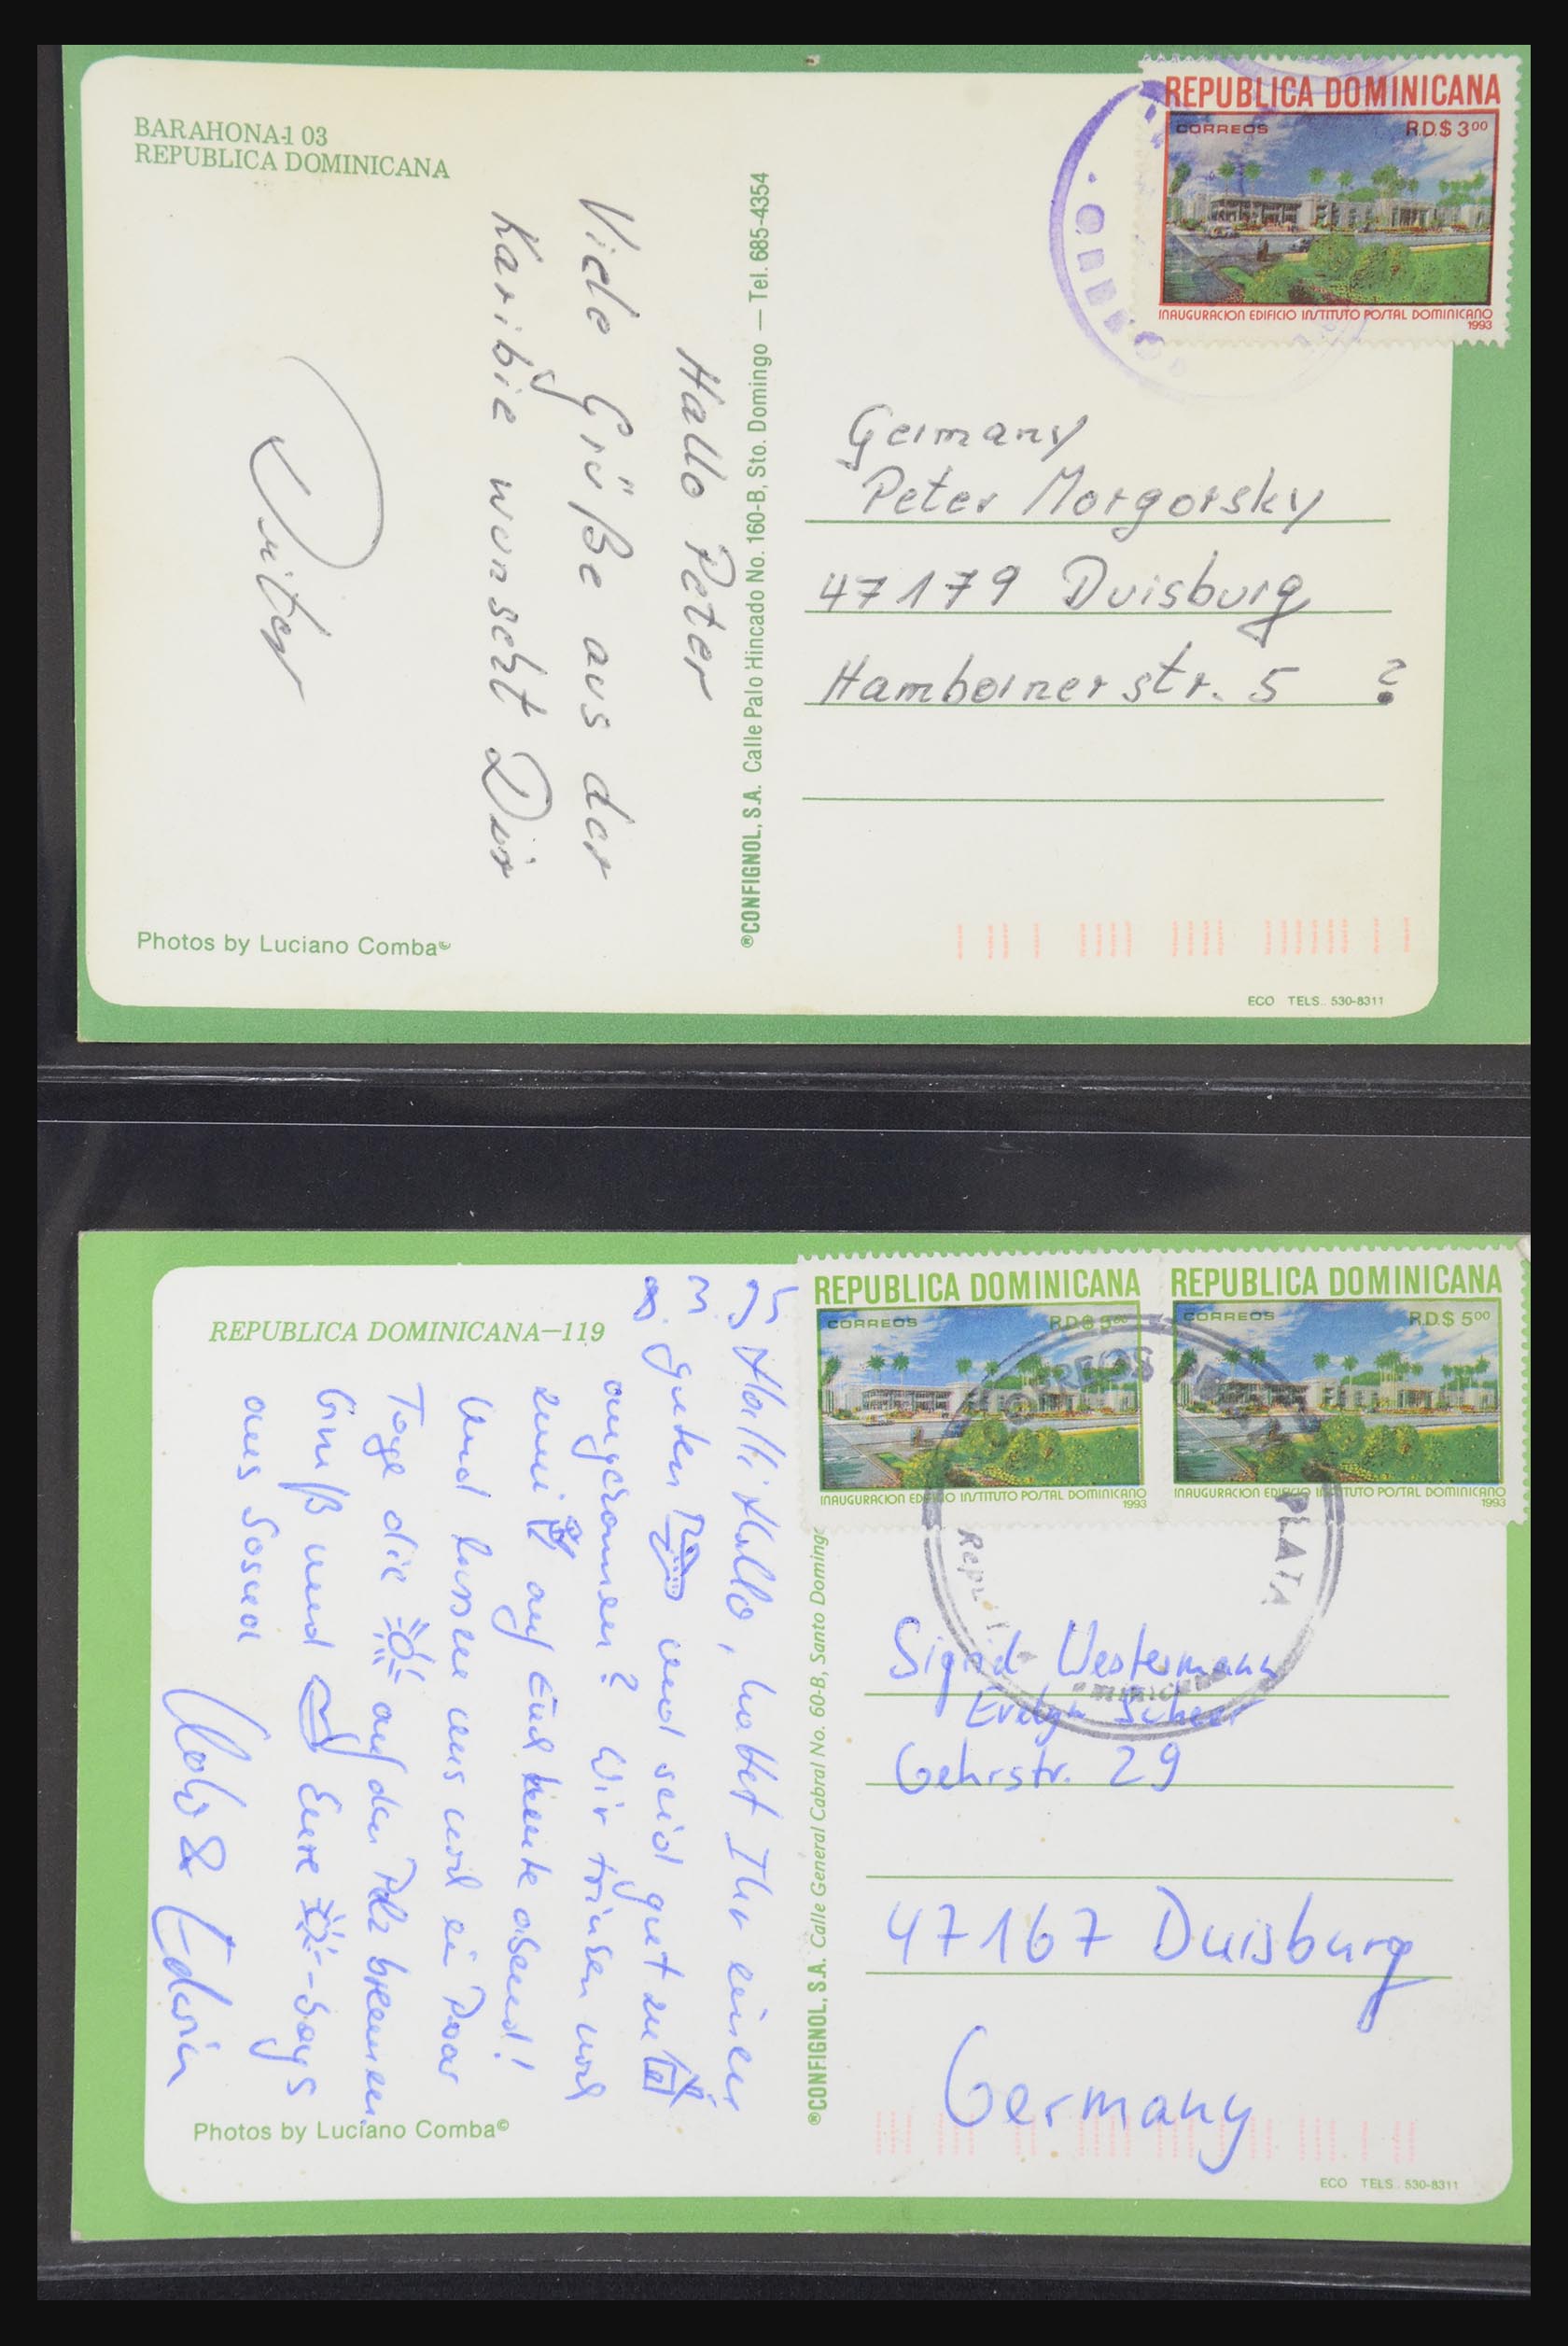 BARAHONA-1 03
REPUBLICA DOMINICANA
Hallo Peter
Viele Grüße aus der
Karibig wünscht Dir
Photos by Luciano Comba©
®CONFIGNOL, S.A. Calle Palo Hincado No. 160-B, Sto. Domingo — Tel. 685-4354
REPUBLICA DOMINICANA
CORREOS R.D.$ 3⁰⁰
INAUGURACION EDIFICIO INSTITUTO POSTAL DOMINICANO
1993
Germany
Peter Morgorsky
47179 Duisburg
Hamborner str. 5 ?
ECO TELS.. 530-8311
REPUBLICA DOMINICANA—119
Halli Hallo, hattet Ihr einen
guten und seid gut zu
angekommen? Wir trinken noch
auf Euch heute abend!
Und lassen uns noch ein Paar
Tage die auf den Pelz brennen
Gruß und Eure -Boys
aus Sosua
& Edwin
Photos by Luciano Comba©
®CONFIGNOL, S.A. Calle General Cabral No. 60-B, Santo Domingo
REPUBLICA DOMINICANA
CORREOS R.D.$ 5⁰⁰
INAUGURACION EDIFICIO INSTITUTO POSTAL DOMINICANO
1993
REPUBLICA DOMINICANA
CORREOS R.D.$ 5⁰⁰
INAUGURACION EDIFICIO INSTITUTO POSTAL DOMINICANO
1993
CORREOS
PLATA
Sigrid Westermann
Evelyn Scheer
Gehrstr. 29
47167 Duisburg
Germany
ECO TELS.. 530-8311